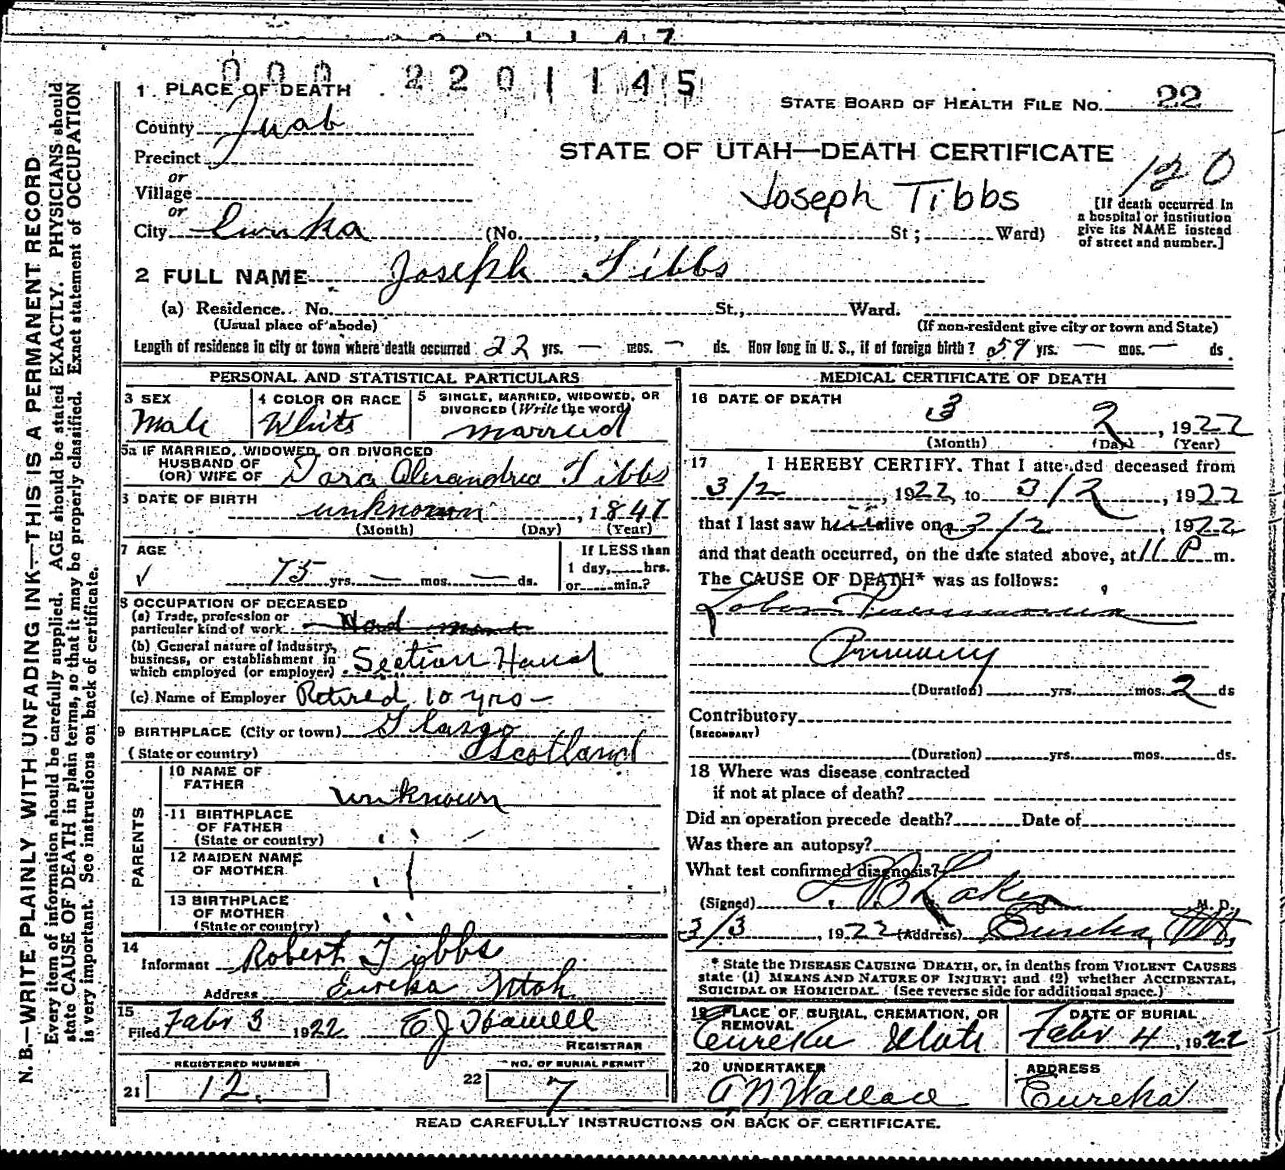 000 2201145
1 PLACE OF DEATH
STATE BOARD OF HEALTH FILE No. 22
County Juab
Precinct
STATE OF UTAH—DEATH CERTIFICATE
120
or
Village
Joseph Tibbs
[If death occurred in
a hospital or institution
give its NAME instead
of street and number.]
or
City Eureka (No. , St ; Ward)
2 FULL NAME Joseph Tibbs
(a) Residence. No. St., Ward.
(Usual place of abode) (If non-resident give city or town and State)
Length of residence in city or town where death occurred 22 yrs. — mos. — ds. How long in U. S., if of foreign birth? 59 yrs. — mos. — ds.
PERSONAL AND STATISTICAL PARTICULARS
3 SEX
Male
4 COLOR OR RACE
White
5 SINGLE, MARRIED, WIDOWED, OR
DIVORCED (Write the word)
Married
5a IF MARRIED, WIDOWED, OR DIVORCED
HUSBAND OF
(OR) WIFE OF Alexandria Tibbs
6 DATE OF BIRTH
unknown , 1847
(Month) (Day) (Year)
7 AGE
75 yrs. — mos. — ds.
If LESS than
1 day, hrs.
or min.?
8 OCCUPATION OF DECEASED
(a) Trade, profession or
particular kind of work
(b) General nature of industry,
business, or establishment in
which employed (or employer) Section Hand
(c) Name of Employer Retired 10 yrs —
9 BIRTHPLACE (City or town) Glasgo
(State or country) Scotland
PARENTS
10 NAME OF
FATHER unknown
11 BIRTHPLACE
OF FATHER
(State or country)
12 MAIDEN NAME
OF MOTHER
13 BIRTHPLACE
OF MOTHER
(State or country)
14
Informant Robert Tibbs
Address Eureka Utah
15
Filed Febr 3 1922 E J Howell
REGISTRAR
REGISTERED NUMBER
21 12.
NO. OF BURIAL PERMIT
22 7
MEDICAL CERTIFICATE OF DEATH
16 DATE OF DEATH
3 2 , 1922
(Month) (Day) (Year)
17 I HEREBY CERTIFY, That I attended deceased from
3/2 , 1922, to 3/2 , 1922
that I last saw him alive on 3/2 , 1922
and that death occurred, on the date stated above, at 11 P m.
The CAUSE OF DEATH* was as follows:
Lobar Pneumonia
Primary
(Duration) yrs. mos. 2 ds
Contributory
(SECONDARY)
(Duration) yrs. mos. ds.
18 Where was disease contracted
if not at place of death?
Did an operation precede death? Date of
Was there an autopsy?
What test confirmed diagnosis?
(Signed) M. D.
3/3 , 1922 (Address) Eureka, Ut.
* State the DISEASE CAUSING DEATH, or, in deaths from VIOLENT CAUSES
state (1) MEANS AND NATURE OF INJURY; and (2) whether ACCIDENTAL,
SUICIDAL OR HOMICIDAL. (See reverse side for additional space.)
19 PLACE OF BURIAL, CREMATION, OR
REMOVAL
Eureka Utah
DATE OF BURIAL
Febr 4 , 1922
20 UNDERTAKER
A N Wallace
ADDRESS
Eureka
READ CAREFULLY INSTRUCTIONS ON BACK OF CERTIFICATE.
N. B.—WRITE PLAINLY WITH UNFADING INK—THIS IS A PERMANENT RECORD
Every item of information should be carefully supplied. AGE should be stated EXACTLY. PHYSICIANS should
state CAUSE OF DEATH in plain terms, so that it may be properly classified. Exact statement of OCCUPATION
is very important. See instrucions on back of certificate.